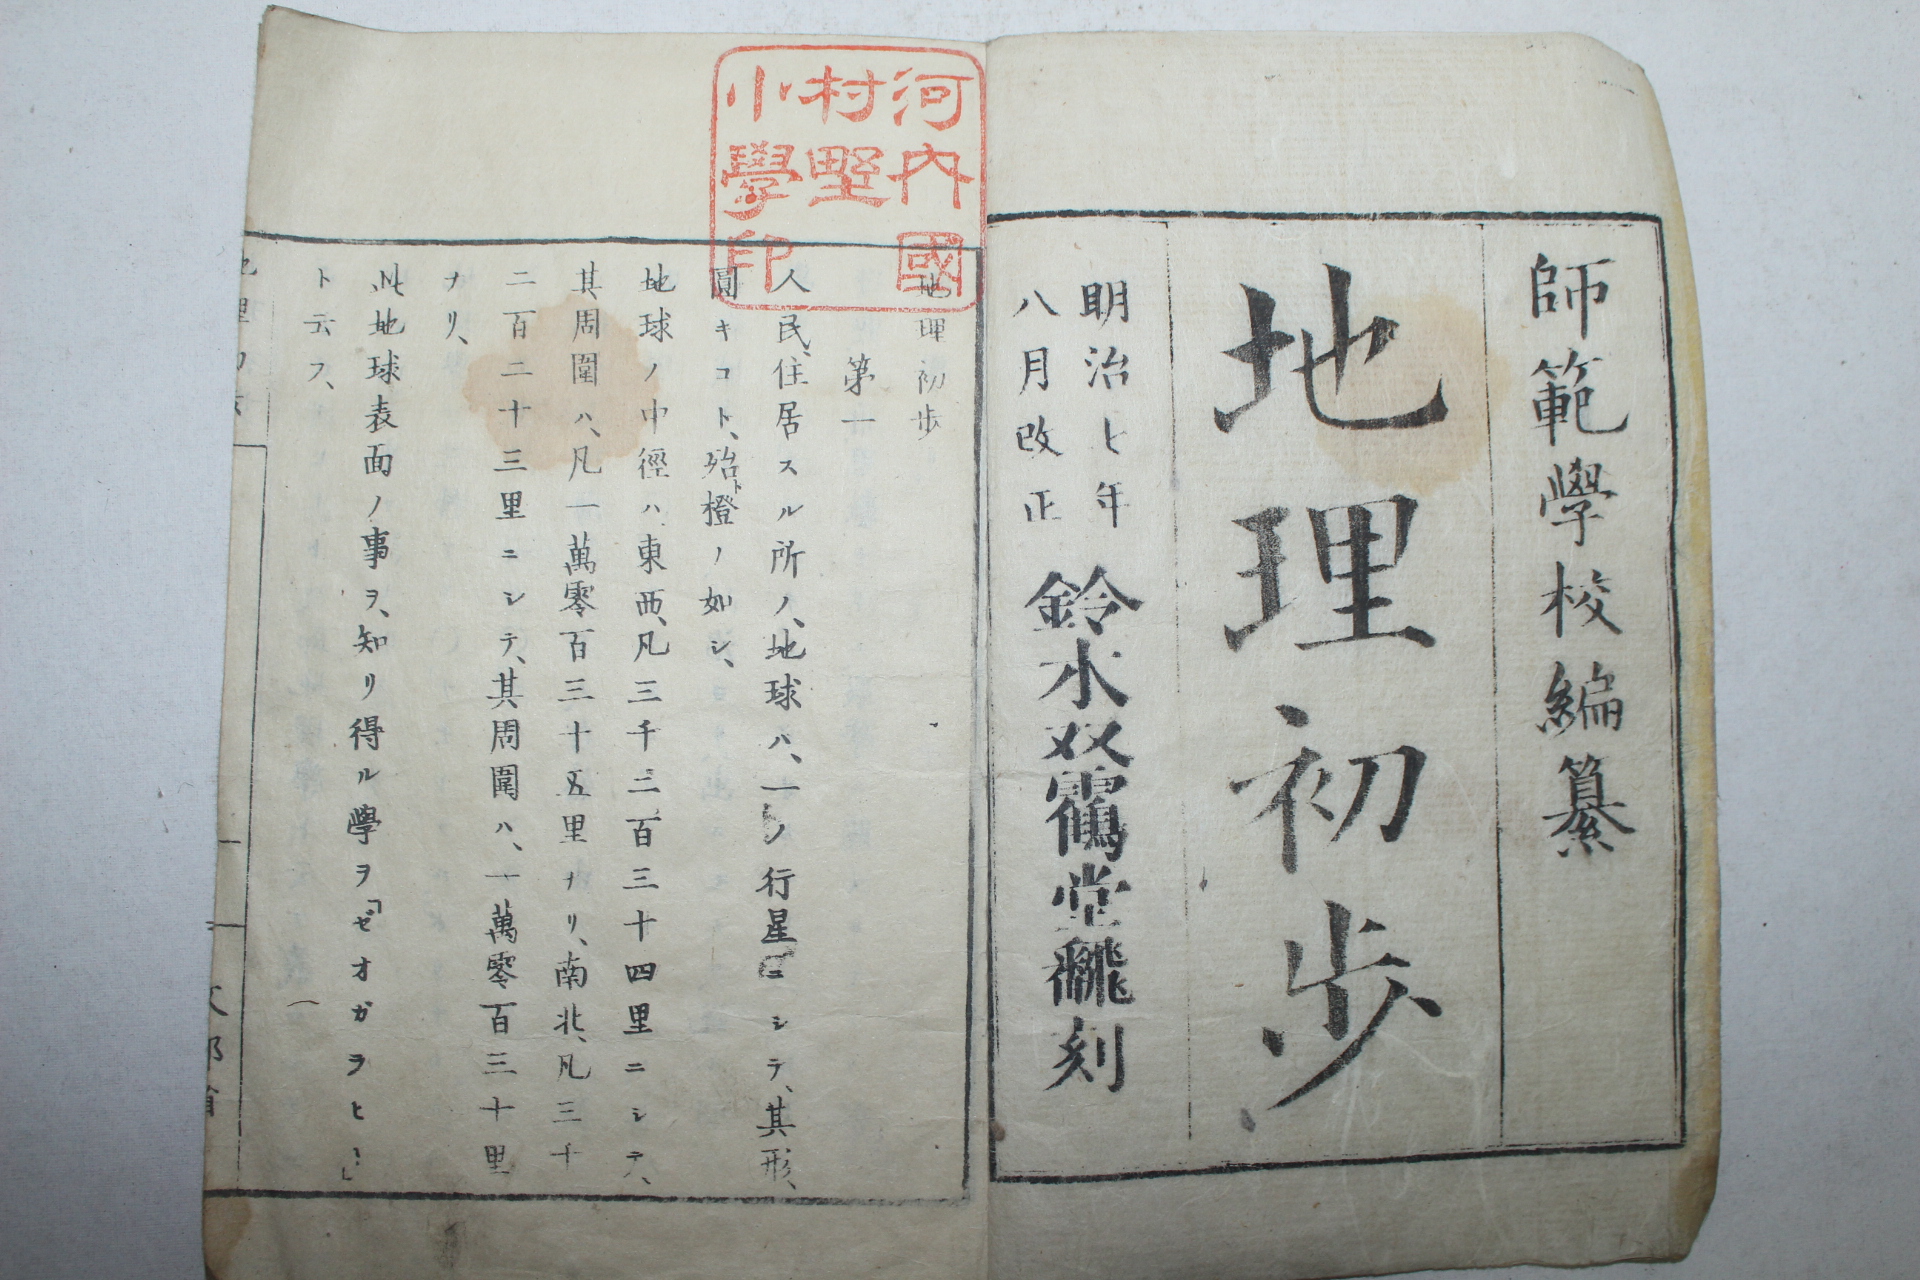 師範學校編纂
地理初歩
明治七年
八月改正
鈴木双鶴堂飜刻
河内國
村野
小學印
地理初歩
第一
人民、住居スル所ノ、地球ハ、一ノ行星ニシテ、其形、
圓キコト、殆ト橙ノ如シ、
地球ノ中徑ハ、東西、凡三千二百三十四里ニシテ、
其周圍ハ、凡一萬零百三十五里ナリ、南北、凡三千
二百二十三里ニシテ、其周圍ハ、一萬零百三十里
ナリ、
此地球表面ノ事ヲ、知リ得ル學ヲ「ゼオガラヒー」
ト云フ、
地理初歩
一
文部省